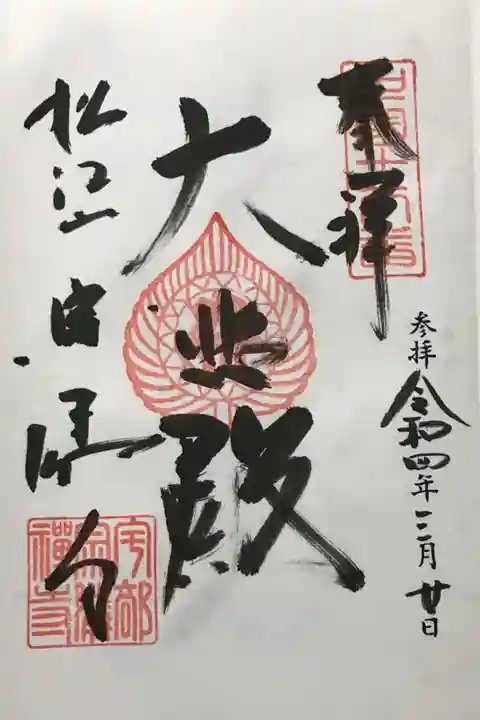 奉拝
参拝 令和四年三月廿日
大悲殿
松江山 宗隣寺
宇部
宗隣
禪寺